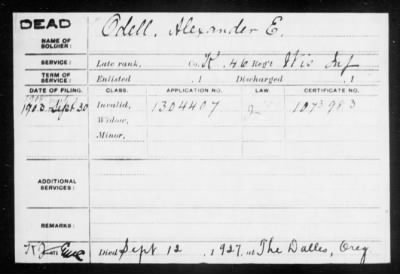 DEAD
NAME OF SOLDIER: Odell, Alexander E.
SERVICE: Late rank, Co. K. 46 Reg't Wis Inf
TERM OF SERVICE: Enlisted , 1 Discharged , 1
DATE OF FILING. CLASS. APPLICATION NO. LAW. CERTIFICATE NO.
Sept 30 Invalid, 1304407 1073983
Widow,
Minor,
ADDITIONAL SERVICES:
REMARKS:
Died Sept 12 , 1927, at The Dalles, Oreg